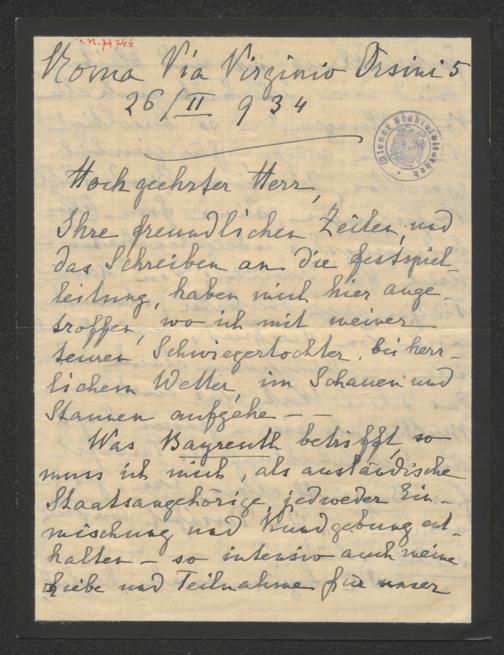 I.N. 74744
Roma Via Virginio Orsini 5
26/II 934
Wiener Stadtbibliothek
Hochgeehrter Herr,
Ihre freundlichen Zeilen, und
das Schreiben an die Festspiel-
leitung, haben mich hier ange-
troffen, wo ich mit meiner
teuren Schwiegertochter, bei herr-
lichem Wetter, im Schauen und
Staunen aufgehe – –
Was Bayreuth betrifft, so
muss ich mich, als ausländische
Staatsangehörige, jedweder Ein-
mischung und Kundgebung ent-
halten – so intensiv auch meine
Liebe und Teilnahme für unser